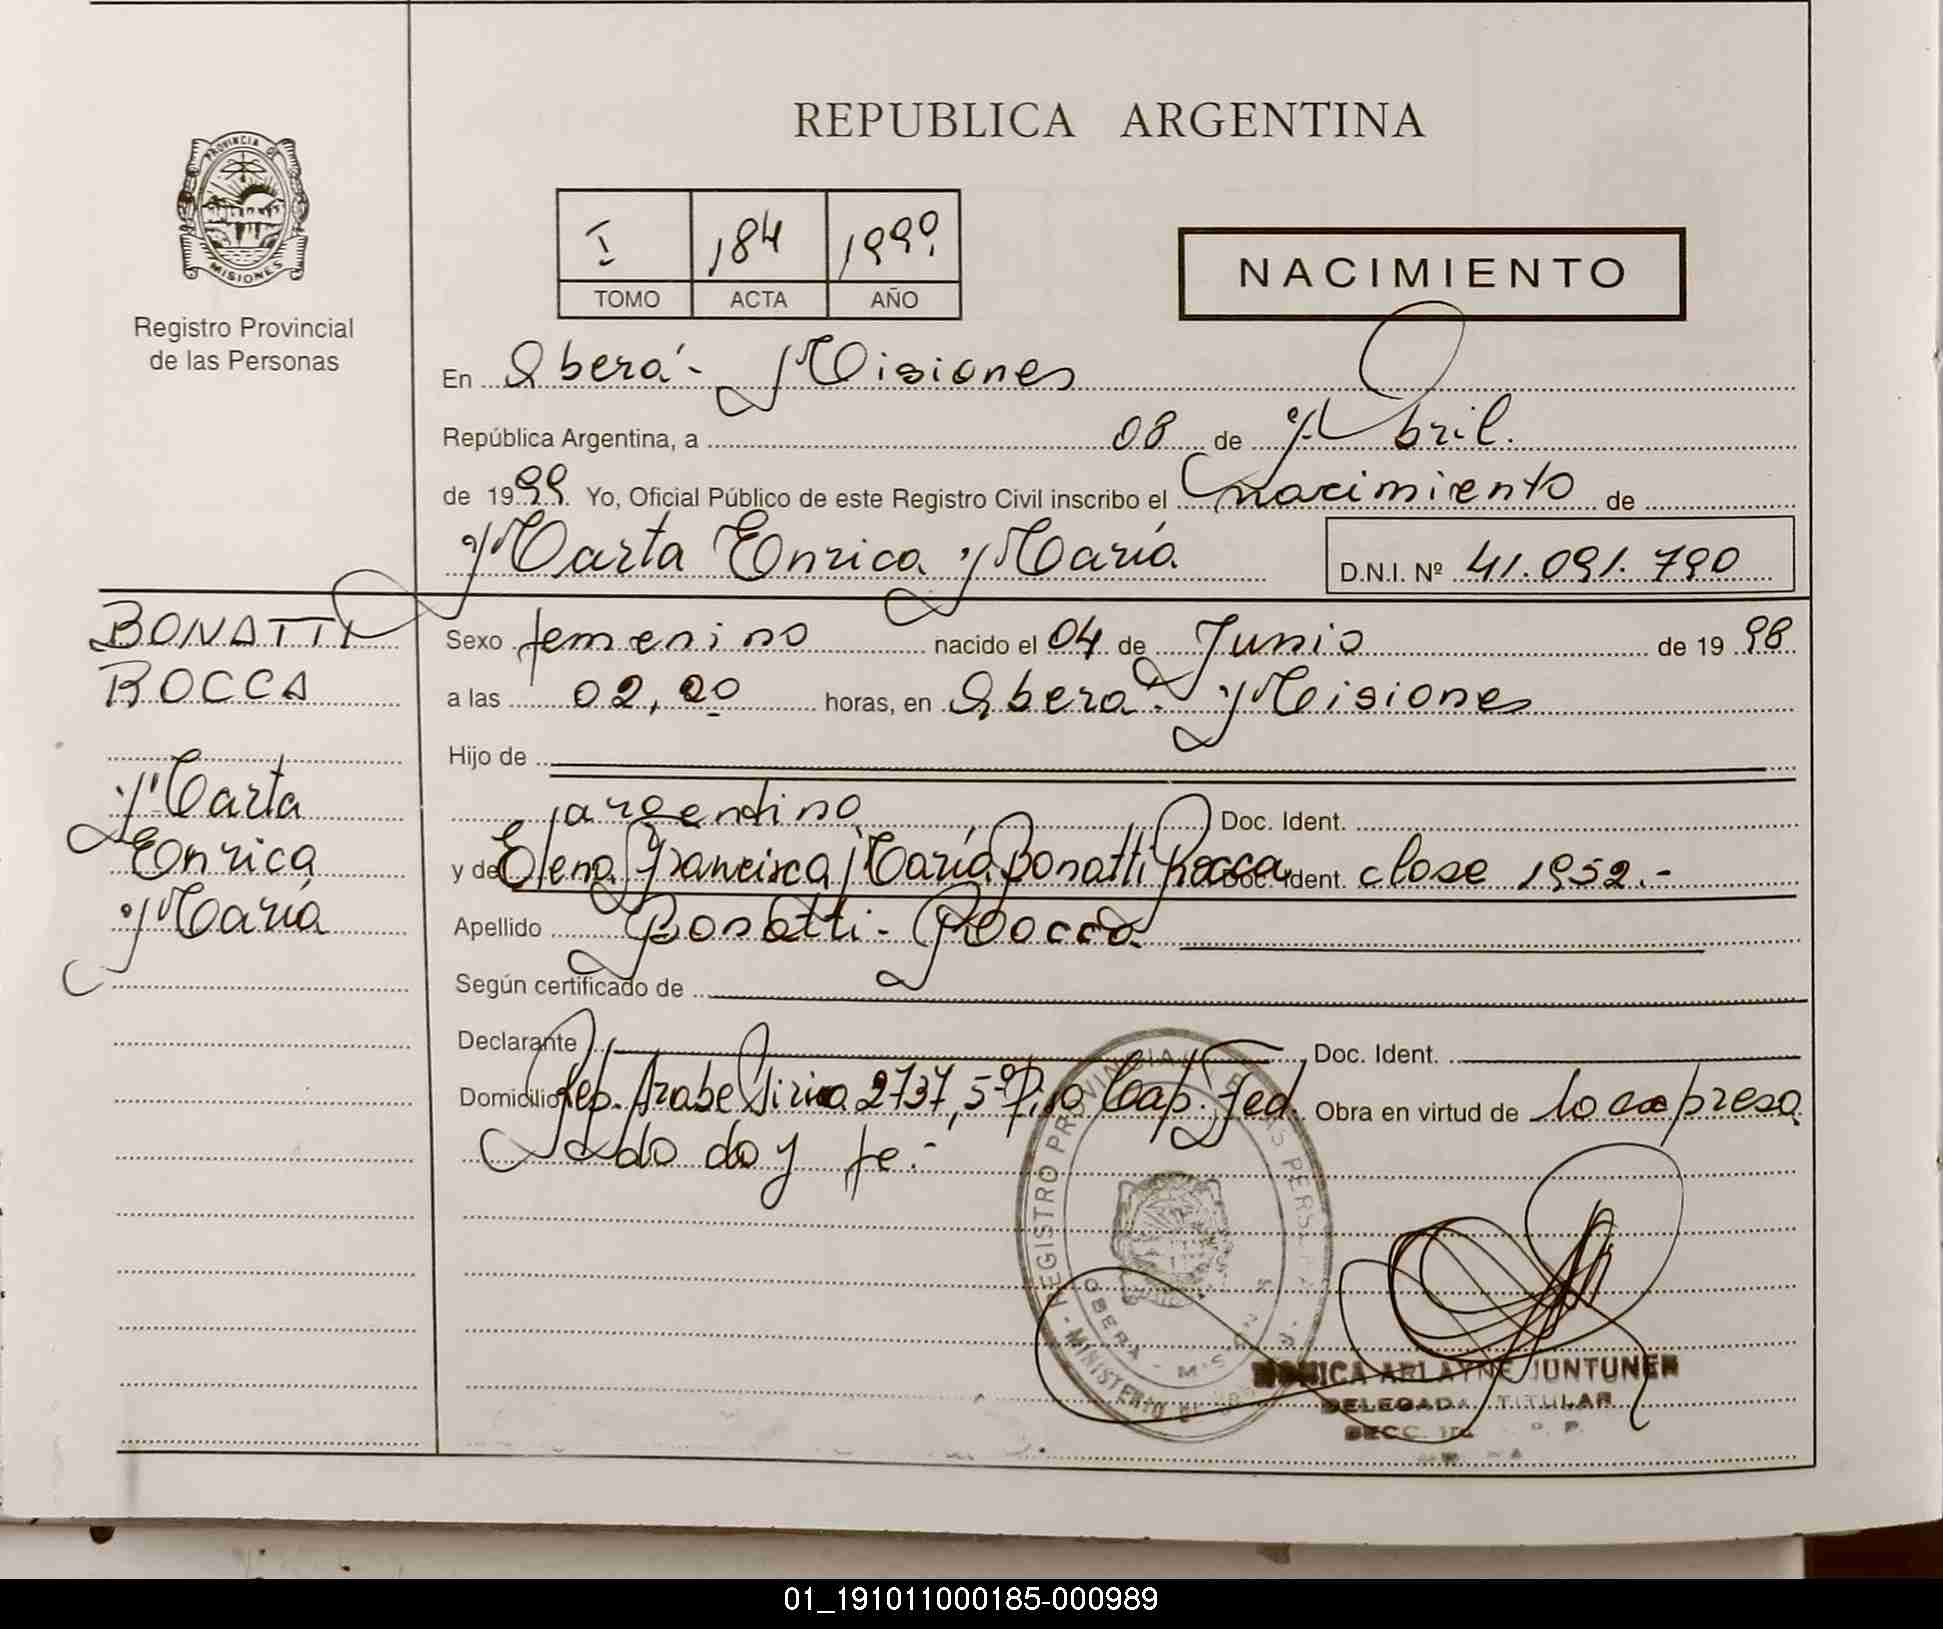 REPUBLICA ARGENTINA
PROVINCIA DE
MISIONES
Registro Provincial
de las Personas
I 184 1999
TOMO ACTA AÑO
NACIMIENTO
En Oberá - Misiones
República Argentina, a 08 de Abril.
de 1999. Yo, Oficial Público de este Registro Civil inscribo el nacimiento de
Marta Enrica María D.N.I. Nº 41.091.790
BONATTI
ROCCA
Marta
Enrica
María
Sexo femenino nacido el 04 de Junio de 1998
a las 02,20 horas, en Oberá - Misiones
Hijo de
argentino Doc. Ident.
y de Elena Francisca María Bonatti Rocca Doc. Ident. clase 1952.-
Apellido Bonatti - Rocca
Según certificado de
Declarante Doc. Ident.
Domicilio Rep. Arabe Siria 2737, 5º Piso Cap. Fed. Obra en virtud de lo expresa
do doy fe.-
REGISTRO PROVINCIAL DE LAS PERSONAS
OBERA - MS.
MINISTERIO DE
MONICA ARLAYNE JUNTUNEN
DELEGADA TITULAR
SECC. R. P.
01_191011000185-000989